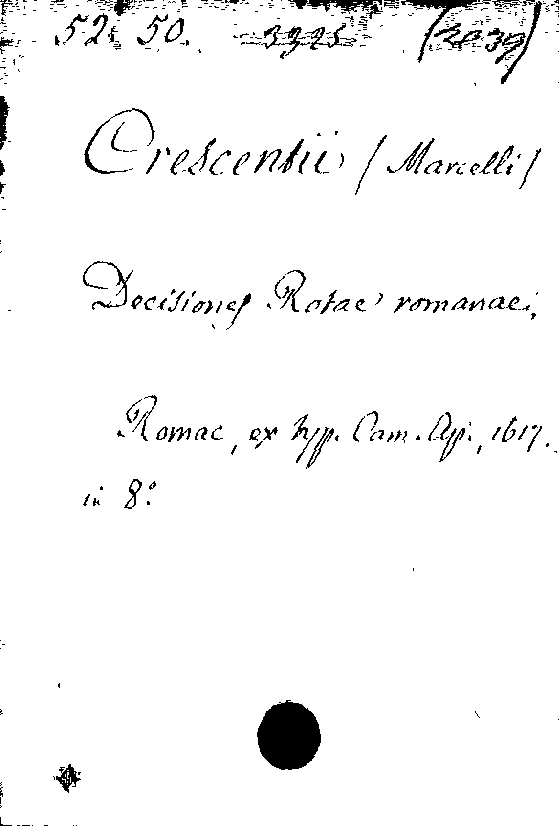 52. 50. 3325 (2039)
Crescentii (Marcelli)
Decisiones Rotae romanae,
Romae, ex typ. Cam. Ap., 1617.
in 8°